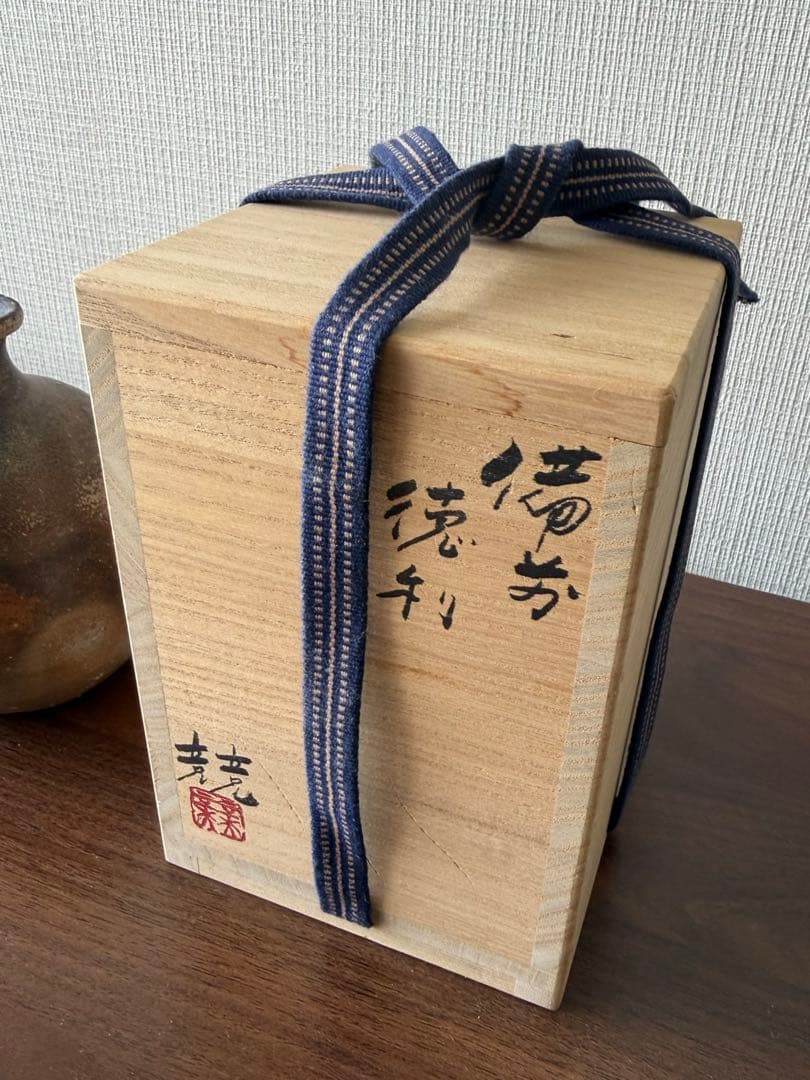 備前
徳利
競